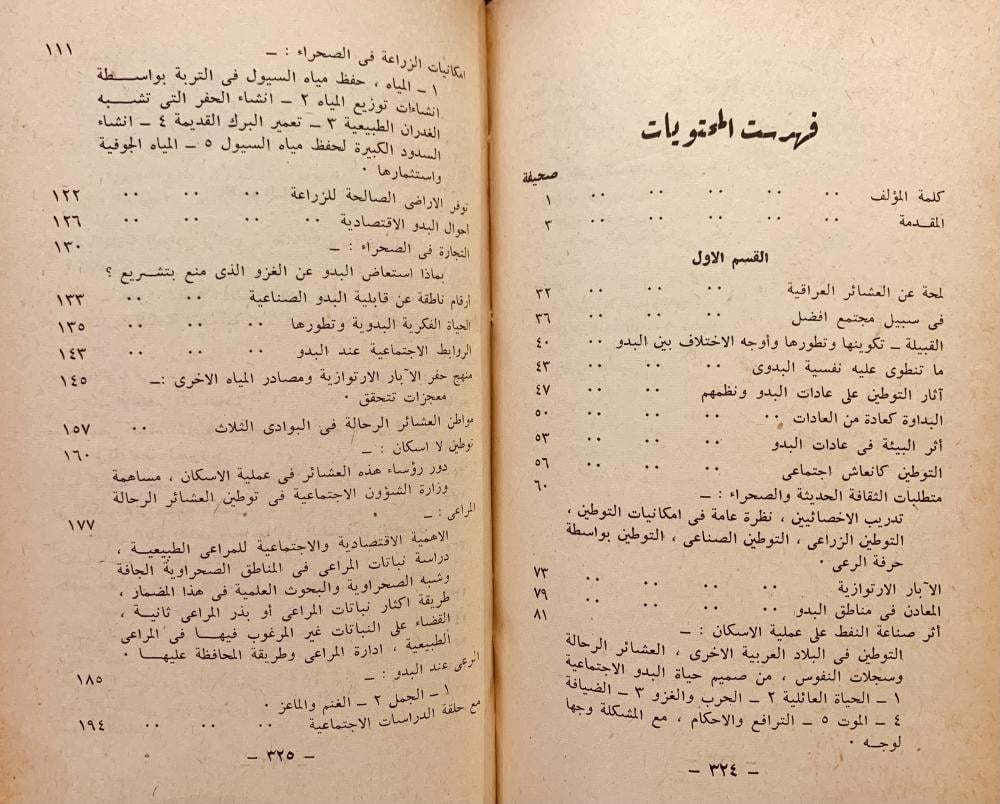 فهرست المحتويات
صحيفة
كلمة المؤلف ٠٠ ٠٠ ٠٠ ٠٠ ٠٠ ١
المقـدمة ٠٠ ٠٠ ٠٠ ٠٠ ٠٠ ٣
القسم الاول
لمحة عن العشائر العراقية ٠٠ ٠٠ ٠٠ ٣٢
فى سبيل مجتمع افضل ٠٠ ٠٠ ٠٠ ٣٦
القبيلة ــ تكوينها وتطورها وأوجه الاختلاف بين البدو ٠٠ ٤٠
ما تنطوى عليه نفسية البدوى ٠٠ ٠٠ ٠٠ ٤٣
آثار التوطين على عادات البدو ونظمهم ٠٠ ٠٠ ٤٧
البداوة كعادة من العادات ٠٠ ٠٠ ٠٠ ٠٠ ٥٠
أثر البيئة فى عادات البدو ٠٠ ٠٠ ٠٠ ٥٣
التوطين كانعاش اجتماعى ٠٠ ٠٠ ٠٠ ٥٦
متطلبات الثقافة الحديثة والصحراء : ــ ٦٠
تدريب الاخصائيين ، نظرة عامة فى امكانيات التوطين ،
التوطين الزراعى ، التوطين الصناعى ، التوطين بواسطة
حرفة الرعى ٠
الآبار الارتوازية ٠٠ ٠٠ ٠٠ ٠٠ ٧٣
المعادن فى مناطق البدو ٠٠ ٠٠ ٠٠ ٠٠ ٧٩
أثر صناعة النفط على عملية الاسكان : ــ ٨١
التوطين فى البلاد العربية الاخرى ، العشائر الرحالة
وسجلات النفوس ، من صميم حياة البدو الاجتماعية
١ ــ الحياة العائلية ٢ ــ الحرب والغزو ٣ ــ الضيافة
٤ ــ الموت ٥ ــ الترافع والاحكام ، مع المشكلة وجها
لوجـه ٠
ــ ٣٢٤ ــ
امكانيات الزراعة فى الصحراء : ــ ١١١
١ ــ المياه ، حفظ مياه السيول فى التربة بواســطة
انشاءات توزيع المياه ٢ ــ انشاء الحفر التى تشـبه
الغدران الطبيعية ٣ ــ تعمير البرك القديمة ٤ ــ انشاء
السدود الكبيرة لحفظ مياه السيول ٥ ــ المياه الجوفية
واستثمارها ٠
توفر الاراضى الصالحة للزراعة ٠٠ ٠٠ ٠٠ ١٢٢
احوال البدو الاقتصادية ٠٠ ٠٠ ٠٠ ٠٠ ١٢٦
التجارة فى الصحراء : ــ ١٣٠
بماذا استعاض البدو عن الغزو الذى منع بتشـريع ؟
أرقام ناطقة عن قابلية البدو الصناعية ٠٠ ٠٠ ١٣٣
الحياة الفكرية البدوية وتطورها ٠٠ ٠٠ ٠٠ ١٣٥
الروابط الاجتماعية عند البدو ٠٠ ٠٠ ٠٠ ١٤٣
منهج حفر الآبار الارتوازية ومصادر المياه الاخرى :ــ ١٤٥
معجزات تتحقق ٠
مواطن العشائر الرحالة فى البوادى الثلاث ٠٠ ١٥٧
توطين لا اسكان : ــ ١٦٠
دور رؤساء هذه العشائر فى عملية الاسكان ، مساهمة
وزارة الشؤون الاجتماعية فى توطين العشائر الرحالة
المراعى : ــ ١٧٧
الاهمية الاقتصادية والاجتماعية للمراعى الطبيعيـة ،
دراسة نباتات المراعى فى المناطق الصحراوية الجافة
وشبه الصحراوية والبحوث العلمية فى هذا المضمار ،
طريقة اكثار نباتات المراعى أو بذر المراعى ثانيـة ،
القضاء على النباتات غير المرغوب فيهـا فى المراعى
الطبيعية ، ادارة المراعى وطريقة المحافظة عليهـا ٠
الرعى عند البدو : ــ ١٨٥
١ ــ الجمل ٢ ــ الغنم والماعز ٠
مع حلقة الدراسات الاجتماعية ٠٠ ٠٠ ٠٠ ١٩٤
ــ ٣٢٥ ــ